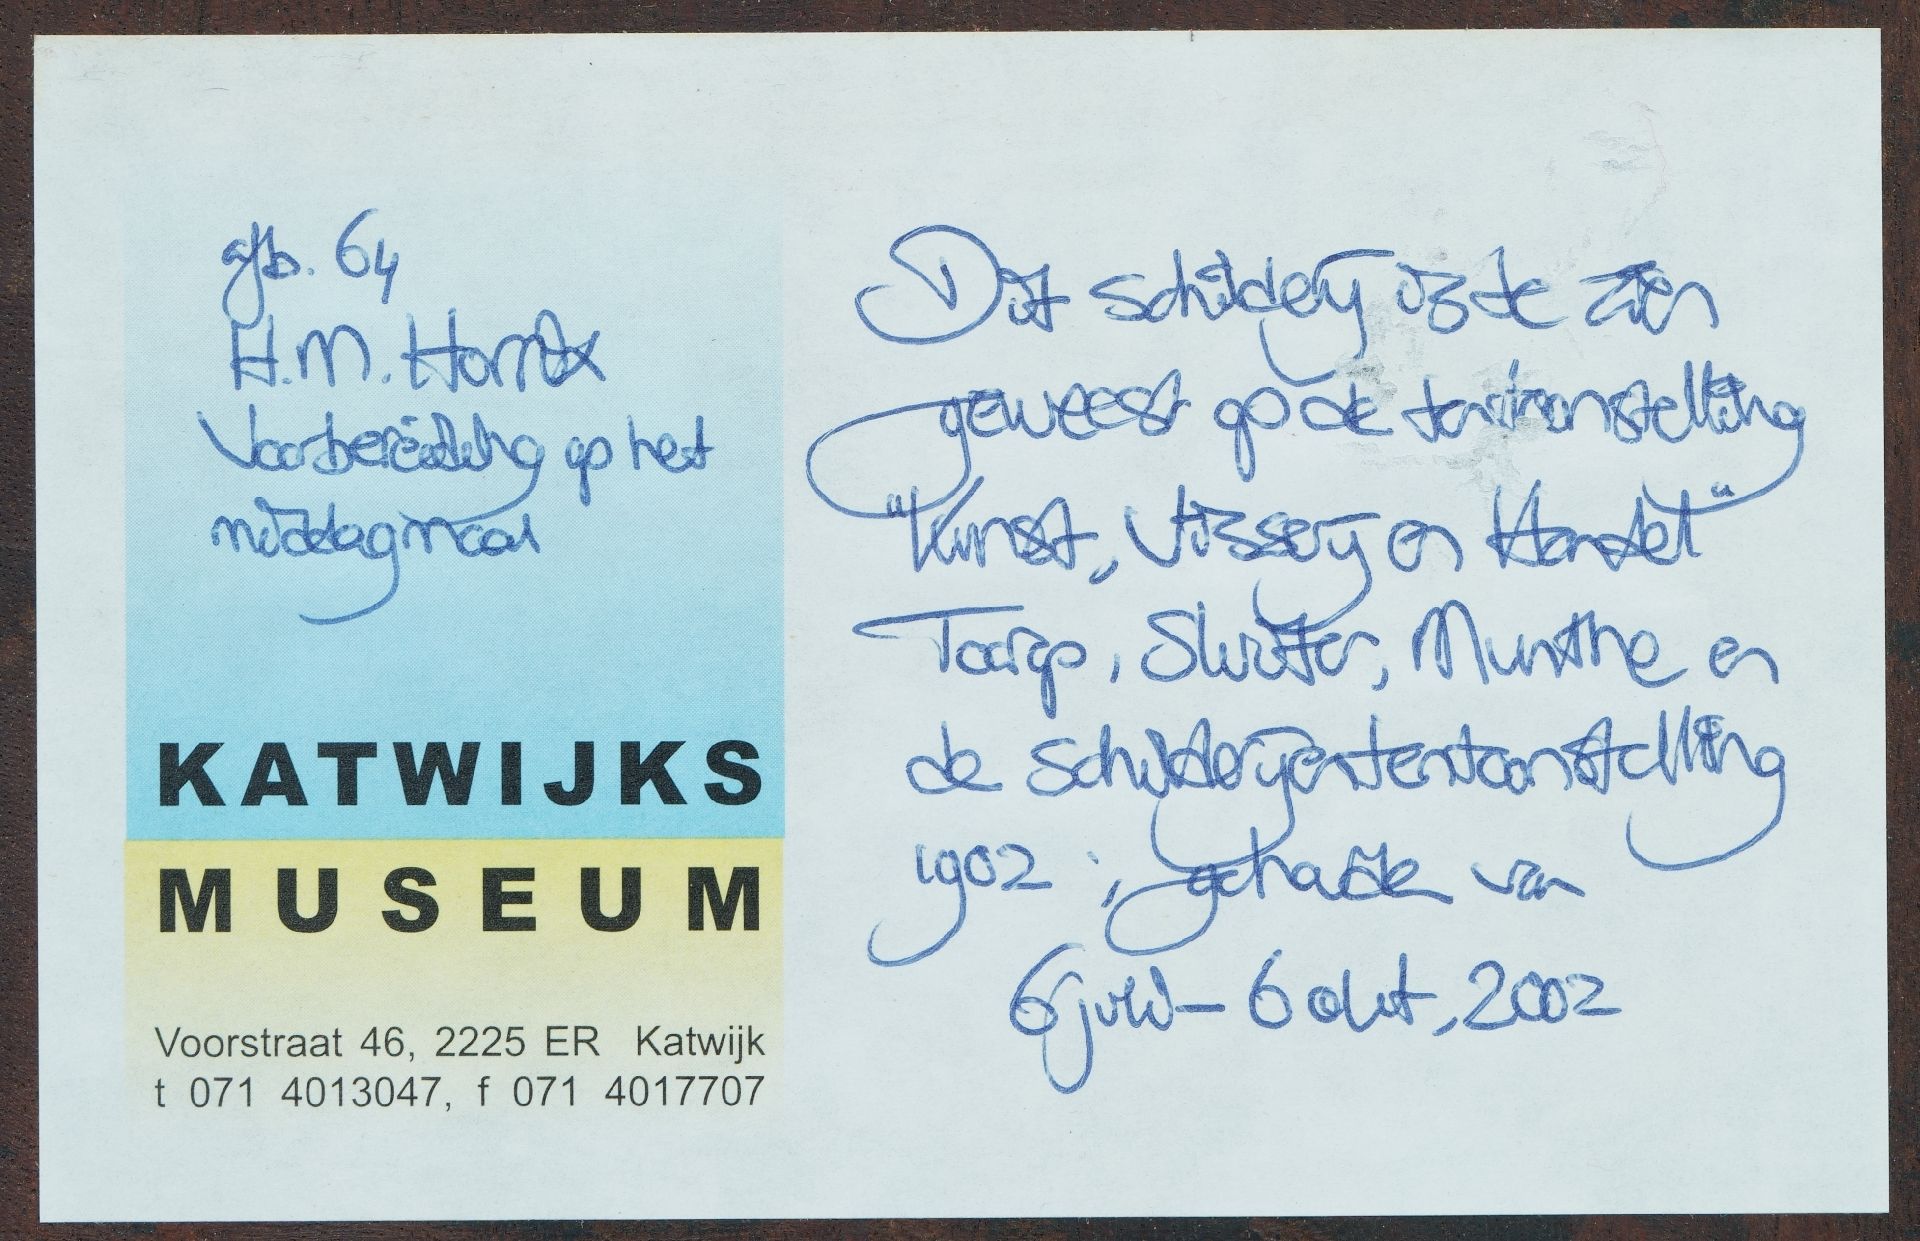 afb. 64
H.M. Horrix
Voorbereiding op het
middagmaal
KATWIJKS
MUSEUM
Voorstraat 46, 2225 ER Katwijk
t 071 4013047, f 071 4017707
Dit schilderij is te zien
geweest op de tentoonstelling
"Kunst, Visserij en Handel"
Toorop, Sluiter, Munthe en
de schilderijententoonstelling
1902 ; gehouden van
6 juli - 6 okt, 2002